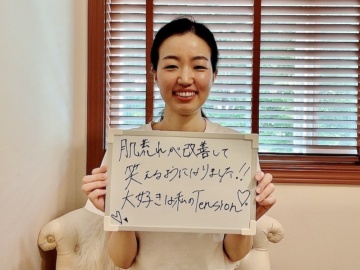 肌荒れべ改善して
笑えるようになりました!!
大好きは私のTension♡
♡